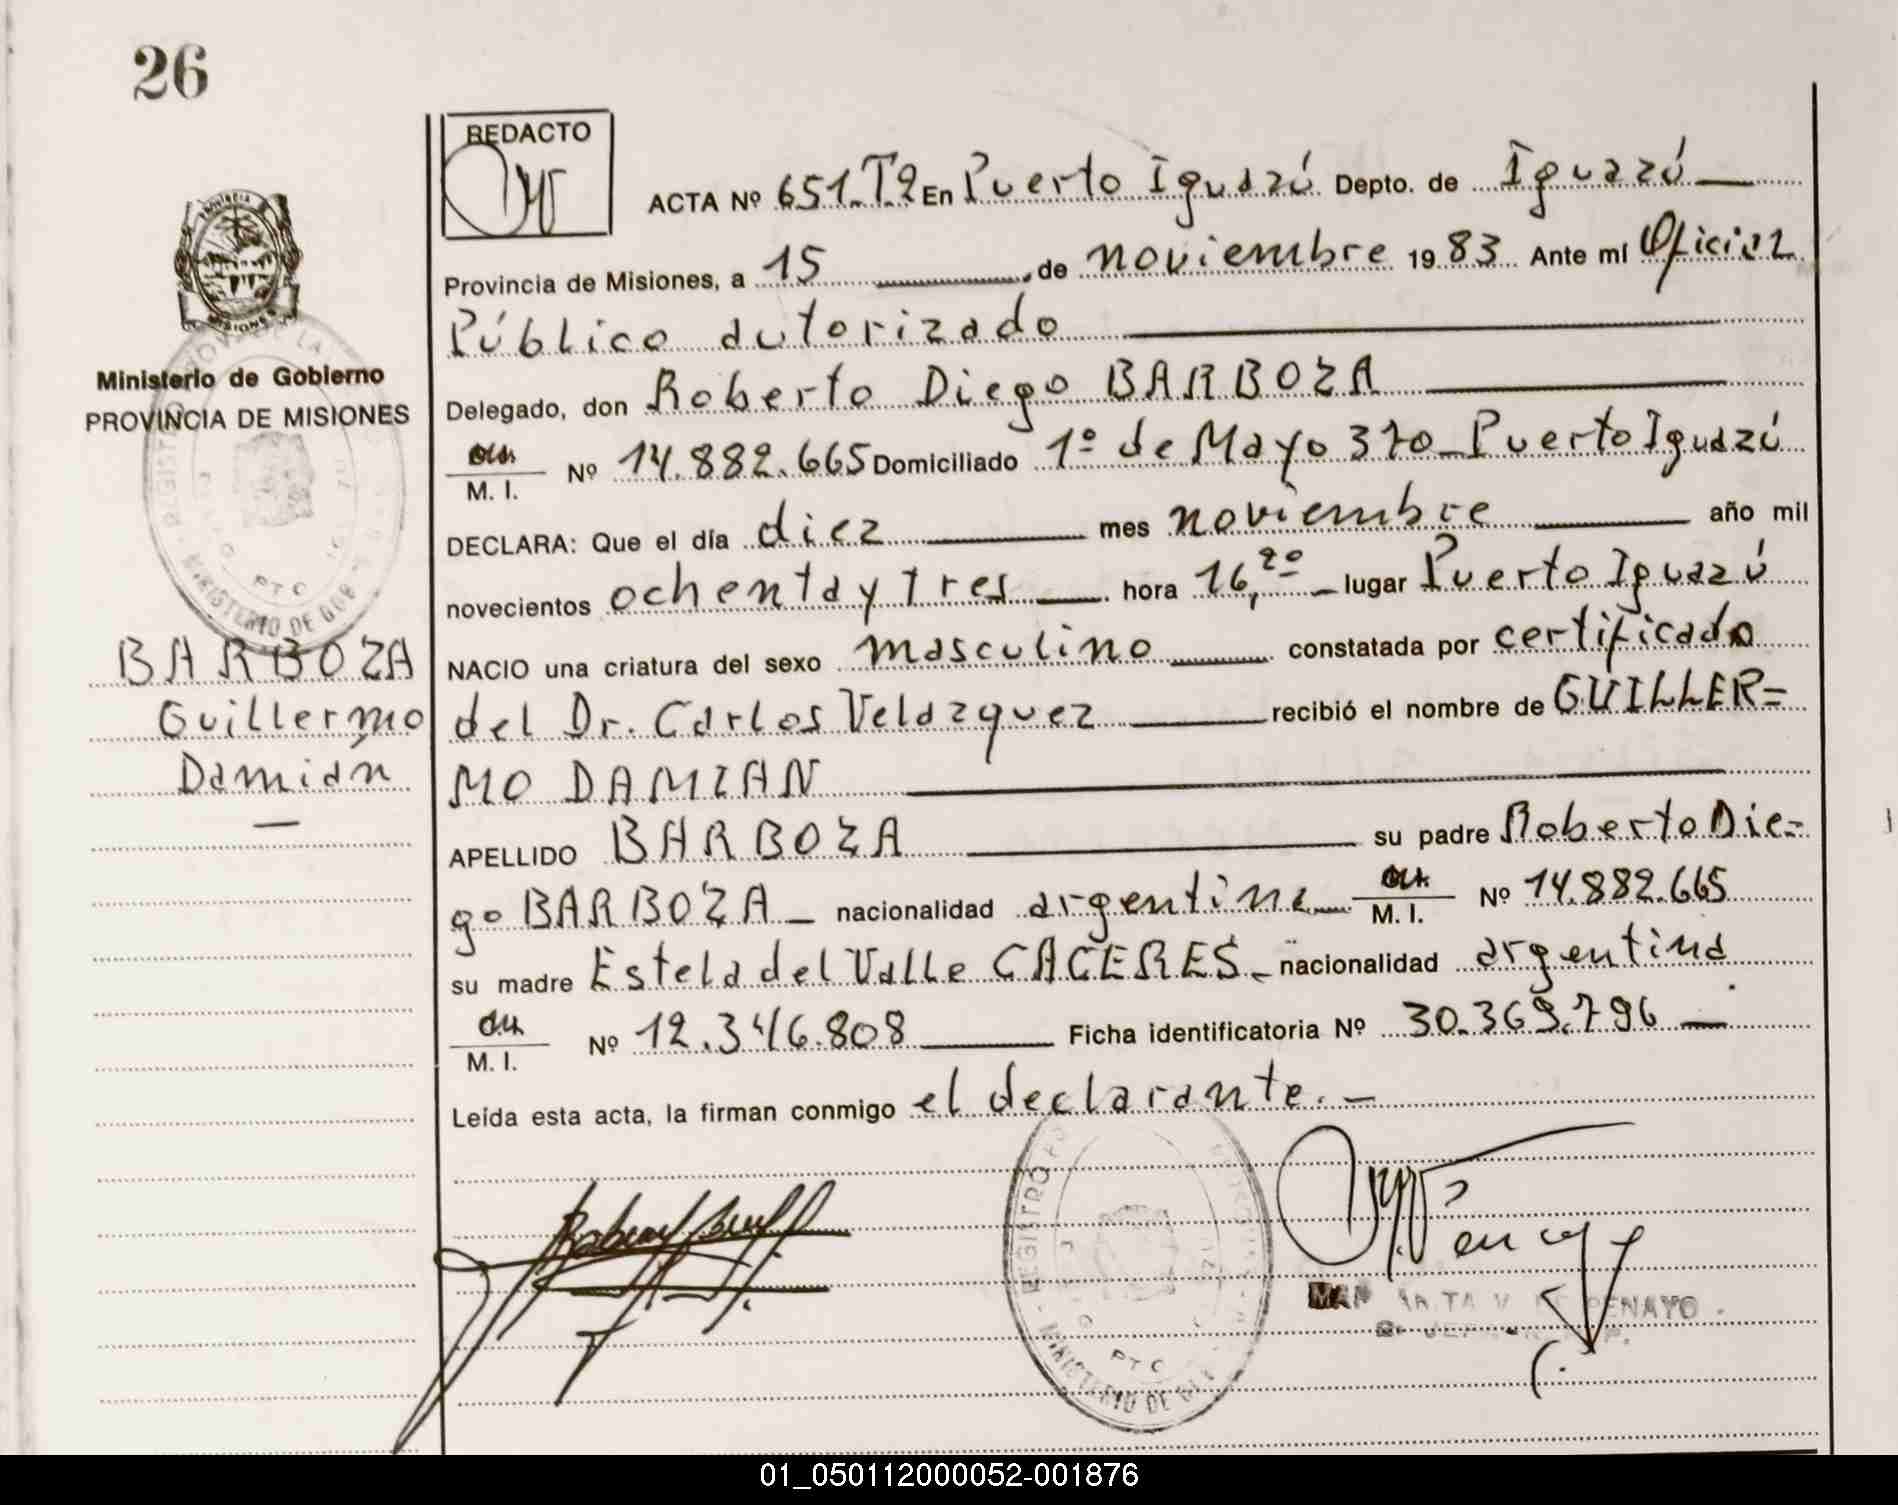 26
REDACTO
ACTA Nº 651.T2 En Puerto Iguazú Depto. de Iguazú
Provincia de Misiones, a 15 de noviembre 1983 Ante mí Oficial
Público autorizado
Ministerio de Gobierno
PROVINCIA DE MISIONES
Delegado, don Roberto Diego BARBOZA
M. I. Nº 14.882.665 Domiciliado 1º de Mayo 370_Puerto Iguazú
DECLARA: Que el día diez mes noviembre año mil
novecientos ochenta y tres hora 16,20 lugar Puerto Iguazú
NACIO una criatura del sexo masculino constatada por certificado
del Dr. Carlos Velazquez recibió el nombre de GUILLER=
MO DAMIAN
BARBOZA
Guillermo
Damián
APELLIDO BARBOZA su padre Roberto Die=
go BARBOZA nacionalidad argentina M. I. Nº 14.882.665
su madre Estela del Valle CACERES nacionalidad argentina
M. I. Nº 12.346.808 Ficha identificatoria Nº 30.369.796
Leída esta acta, la firman conmigo el declarante.
REGISTRO
MINISTERIO DE
PENAYO
01_050112000052-001876